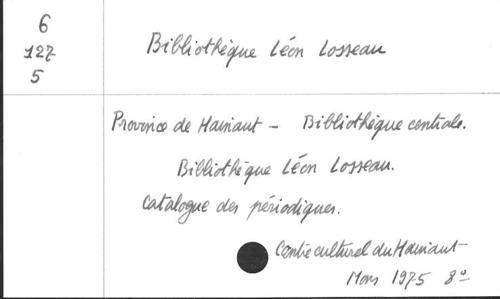 6
127
5
Bibliothèque Léon Losseau
Province de Hainaut – Bibliothèque centrale.
Bibliothèque Léon Losseau.
Catalogue des périodiques.
Centre culturel du Hainaut
Mons 1975 8°